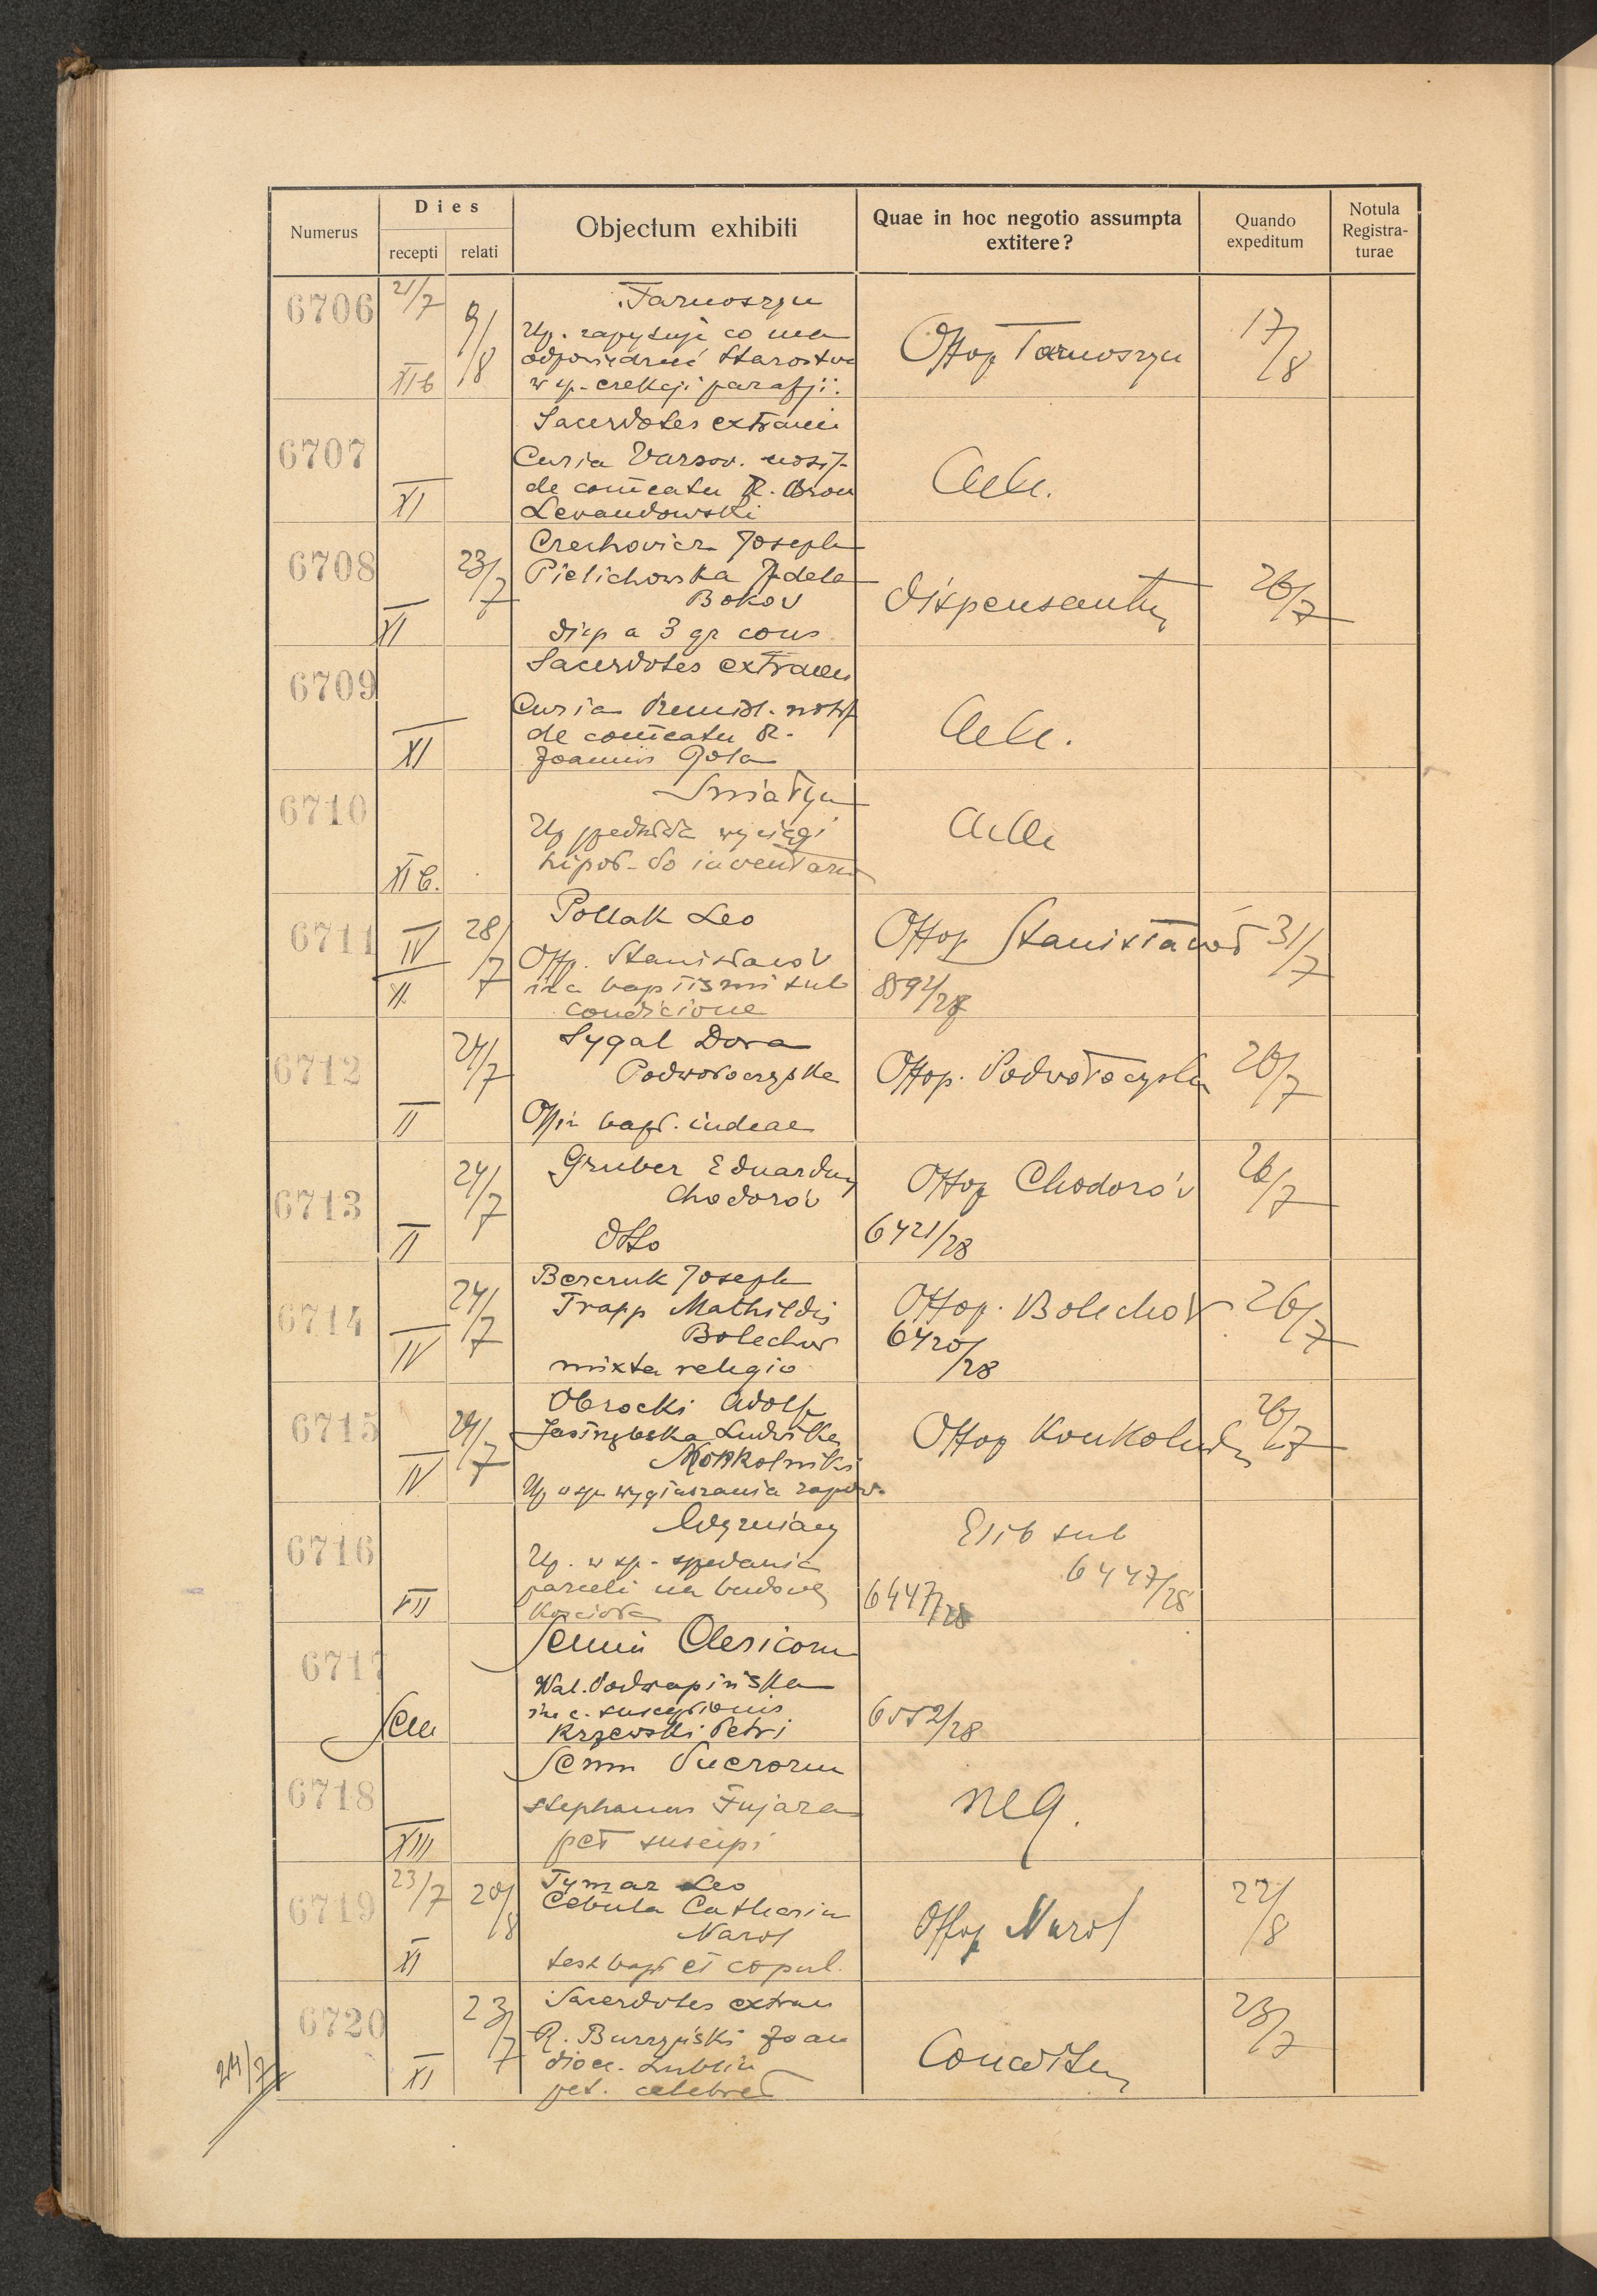 Numerus
Dies
recepti
relati
Objectum exhibiti
Quae in hoc negotio assumpta
extitere?
Quando
expeditum
Notula
Registra-
turae
6706
21/7
XI b
9/8
Tarnoszyn
Up. zapytuje co ma
odpowiedzieć Starostwu
w sp. erekcji parafji.
Offop Tarnoszyn
17/8
6707
XI
Sacerdotes extranei
Curia Varsov. notif.
de comeatu R. Bron
Levandowski
6708
XI
23/7
Czechovicz Joseph
Pielichowska Adela
Bokov
disp a 3 gr cons
dispensantur
26/7
6709
XI
Sacerdotes extranei
Curia Premisl. notif
de comeatu R.
Joannis Gola
6710
XI b.
Sniatyn
Up przedkłada wyciągi
hipot. do inwentarza
6711
IV
II
28/7
Pollak Leo
Offp. Stanislaov
in c baptismi sub
condicione
Offop Stanisławów
8592/28
31/7
6712
II
24/7
Sygal Dora
Podwołoczyska
Offin bapt. iudeae
Offop. Podwołoczyska
26/7
6713
II
24/7
Gruber Eduardus
Chodorów
dtto
Offop Chodorów
6421/28
26/7
6714
IV
24/7
Berczuk Joseph
Trapp Mathildis
Bolechov
mixta religio
Offop. Bolechov
6420/28
26/7
6715
IV
24/7
Obrocki Adolf
Jasinzbska Ludvika
Konkolniki
Up w sp wygłaszania zapow.
Offop Konkolniki
26/7
6716
VII
Up. w sp. sprzedania
parceli na budowę
Kościoła
6447/28
Exib sub
6447/28
6717
Sem
Semin Clericorum
Wal. Podrapińska
in c. susceptionis
Krzewski Petri
6552/28
6718
XIII
Semin Puerorum
Stephanus Fujara
pet suscipi
neg.
6719
23/7
XI
20/8
Tymaz Leo
Cebula Catharin
Narol
test bapt et copul.
Offop Narol
22/8
6720
XI
23/7
Sacerdotes extran
R. Burzyński Joan
dioec. Lublin
pet. celebret
Conceditur
23/7
24/7